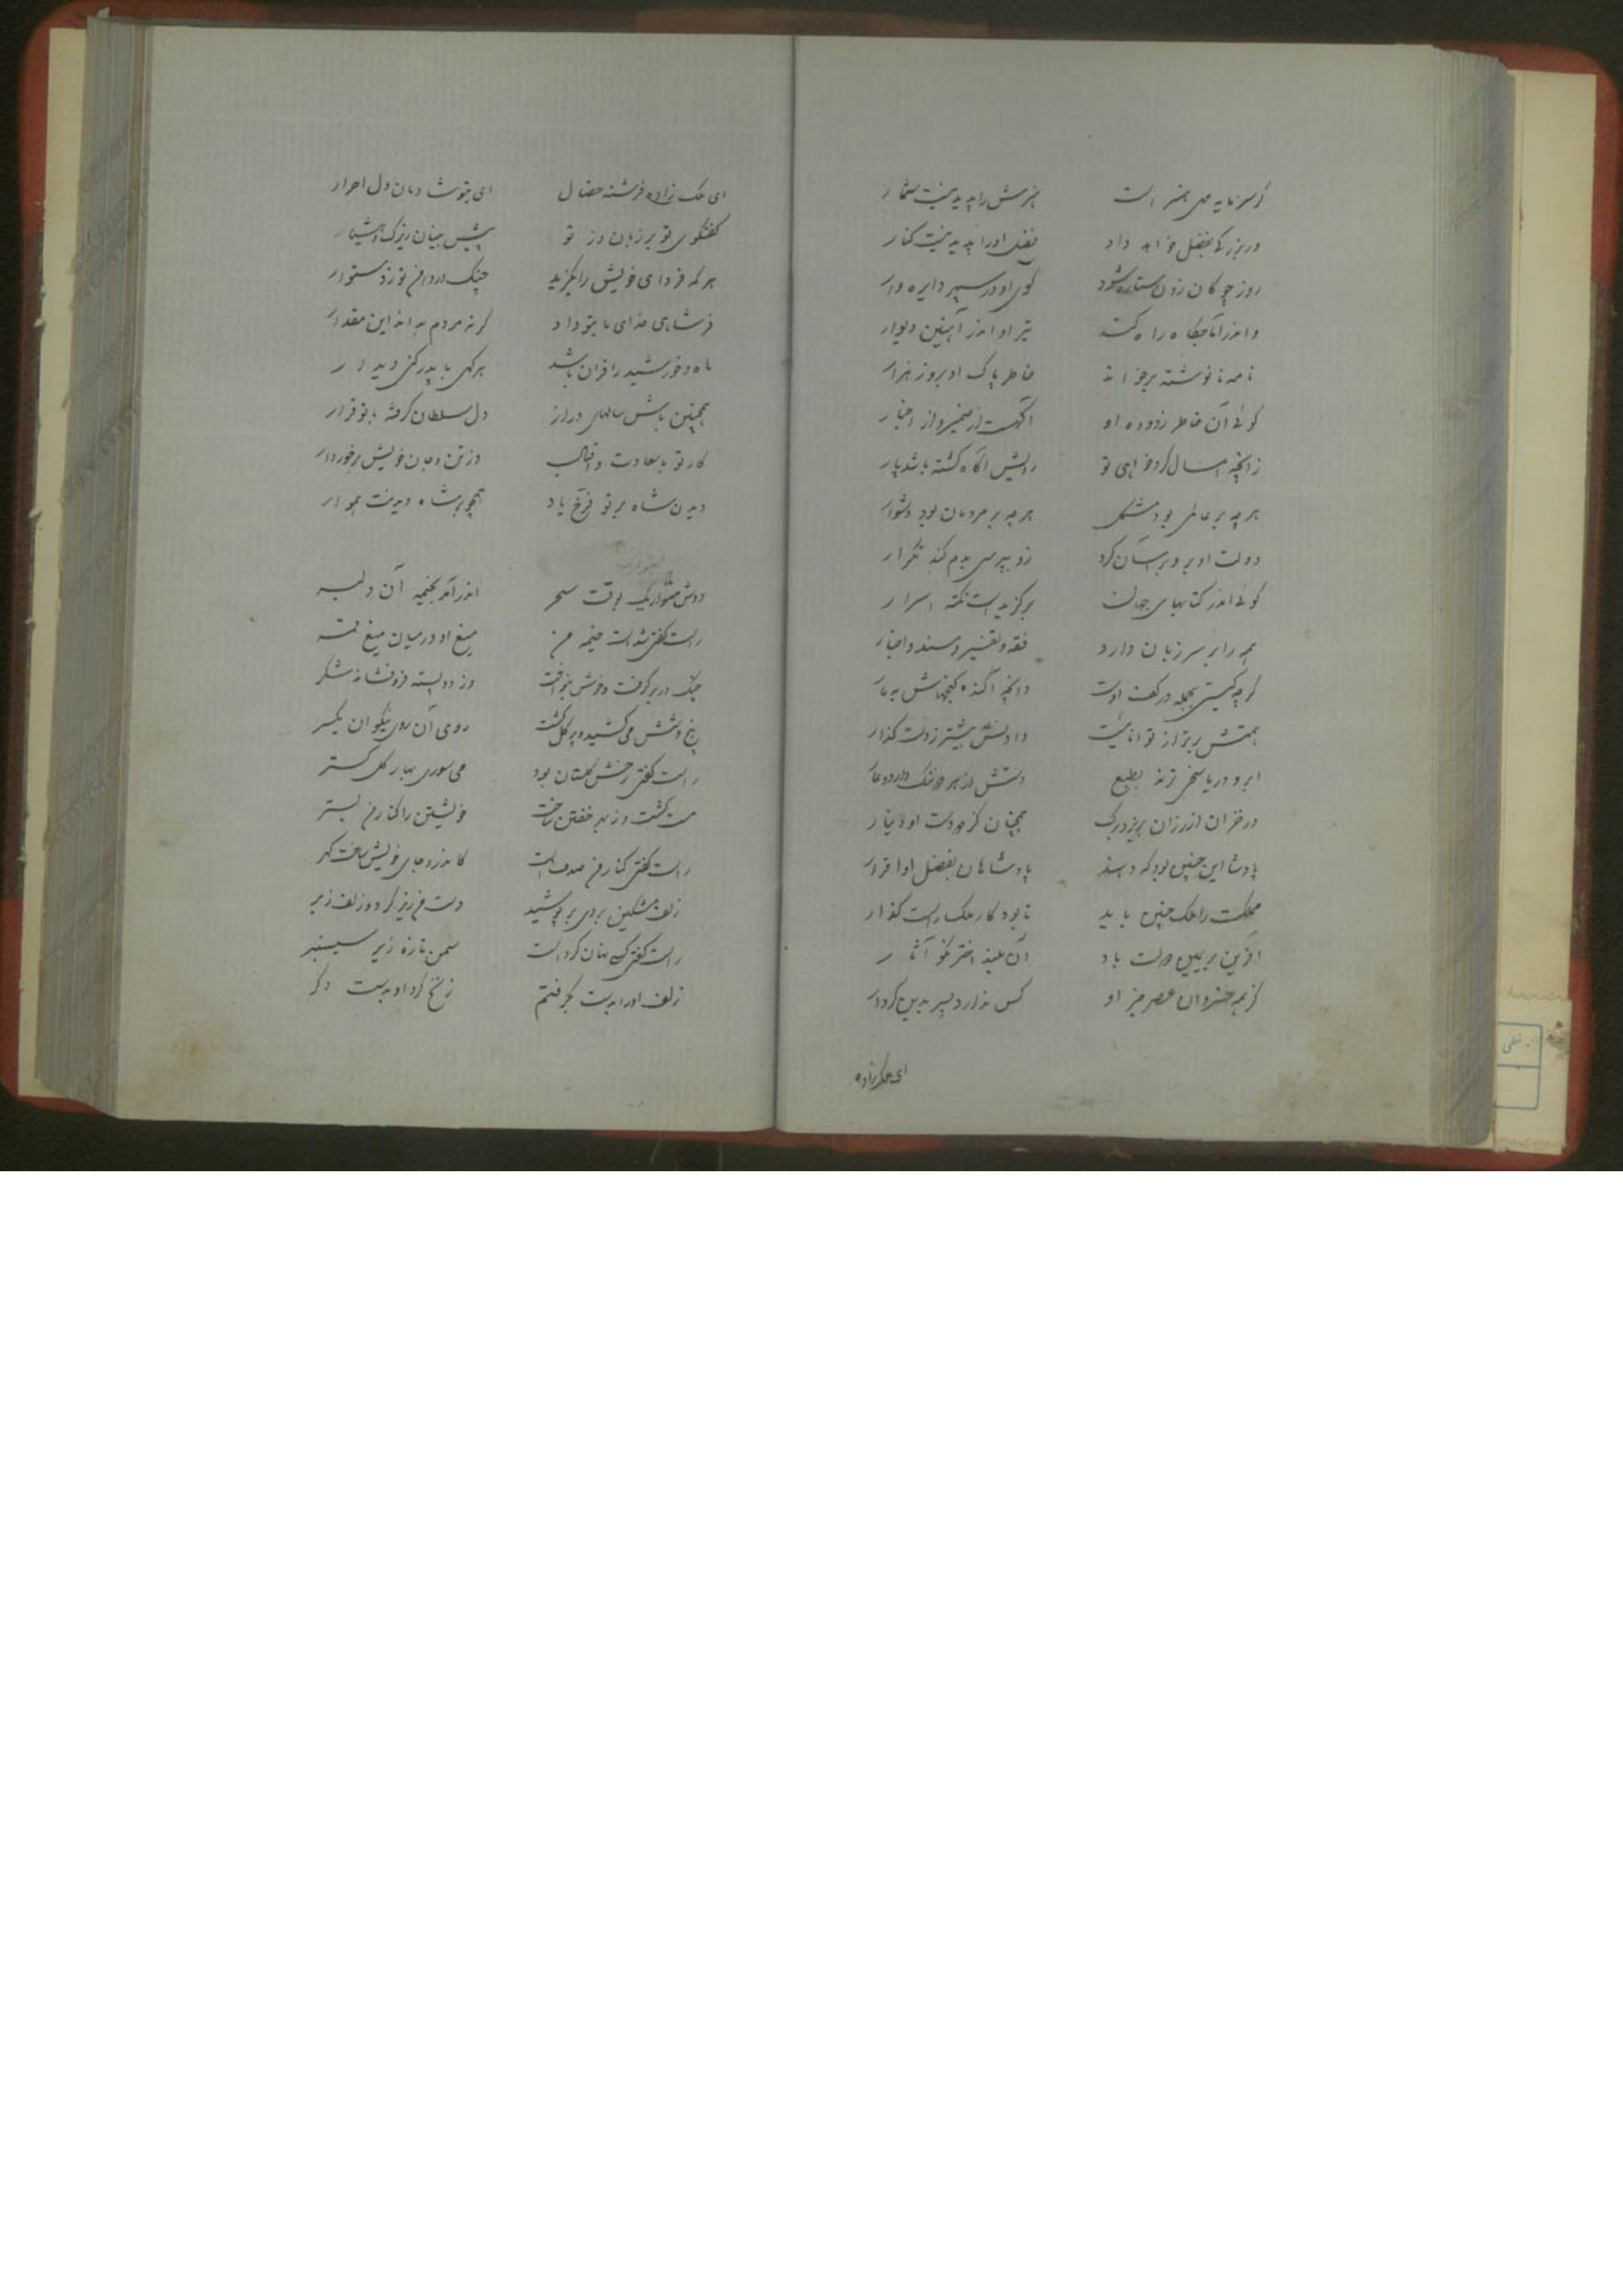 گر سرمایه مهی هنر است هنرش را پدید نیست شمار
ور بزرگی بفضل خواهد داد فضل او را پدید نیست کنار
روز چوگان زدن ستاره شود گوی او در سپهر دایره وار
و اندر آماجگاه راه کند تیر او اندر آهنین دیوار
نامه نانوشته برخواند خاطر پاک او بروز هزار
گوئی آن خاطر زدوده او آگهست از ضمیر و از اخبار
زانچه امسال کرد خواهی تو رایش آگاه گشته باشد پار
هر چه بر عالمی بود مشکل هر چه بر مردمان بود دشوار
دولت او برو بر آسان کرد زو بپرسی بدم کند تکرار
گوئی اندر کتابهای جهان برگزیدست نکته اسرار
همه را بر سر زبان دارد فقه و تفسیر و مسند و اخبار
گرچه گیتی بجمله در کف اوست وانچه آکنده گنجهاش بمار
همتش برتر از توانائیست دادنش بیشتر ز دست گذار
ابر و دریا سخی ترند بطبع دستش از هر دو ننگ دارد و عار
در خزان از رزان بریزد برگ همچنان کز دو دست او دینار
پادشا این چنین بود که دهند پادشاهان بفضل او اقرار
مملکت را ملک چنین باید تا بود کار ملک راست گذار
آفرین بر یمین دولت باد آن بلند اختر نکو آثار
کز همه خسروان عصر جز او کس ندارد پسر بدین کردار
ای ملک زاده
ای ملک زاده فرشته خصال ای بتو شادمان دل احرار
گفتگوی تو بر زبان دز تو پیش بینان زیرک و هشیار
هر که فردای خویش را نگرید چنگ در دامن تو زد ستوار
فر شاهی خدای با تو داد گر نه مردم بداند این مقدار
ماه و خورشید را قران باشد هر گهی با پدر کنی دیدار
همچنین باش سالهای دراز دل سلطان گرفته با تو قرار
کار تو با سعادت و اقبال وز تن و جان خویش برخوردار
دیدن شاه بر تو فرخ باد همچو بر شاه دیدنت هموار
دوش متواریک بوقت سحر اندر آمد بخیمه آن دلبر
راست گفتی شدست خیمه من میغ او در میان میغ قمر
چنگ در بر گرفت و خوش بنواخت وز دو بسته فرو فشاند شکر
پنج و شش می کشید و پر گل گشت روی آن روی نیکوان یکسر
راست گفتی رخش گلستان بود می سوری بهار گل گستر
مست گشت و ز بهر خفتن ساخت خویشتن را کنار من بستر
راست گفتی کنار من صدفست کاندرو جای خویش ساخت گهر
زلف مشکین بروی بر پوشید دست من زیر کرد و زلف زبر
راست گفتی کسی نهان کردست سمن تازه زیر سیسنبر
زلف او را بدست بگرفتم زنخ گرد او بدست دگر